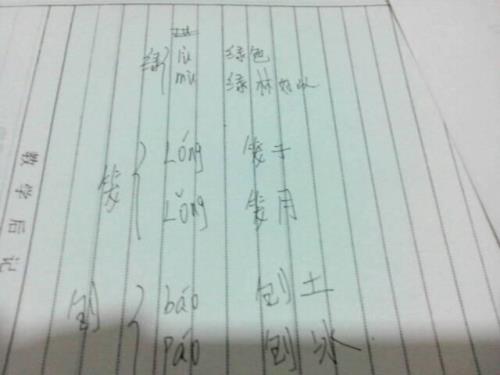 绿 lù 绿色
mù 绿林好汉
笼 Lóng 笼子
Lǒng 笼月
刨 báo 刨土
páo 刨冰
教学后记